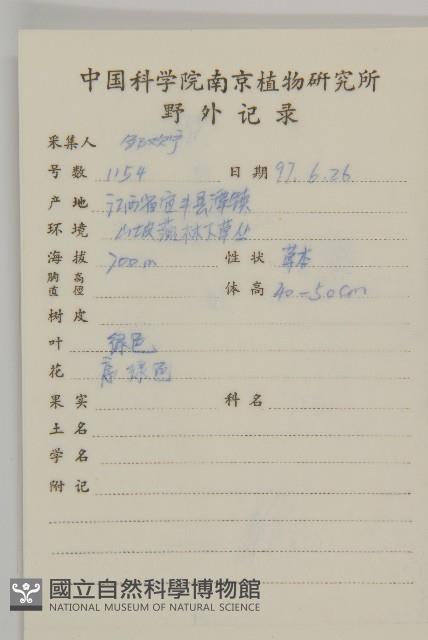 中国科学院南京植物研究所
野外记录
采集人
号数 1154 日期 97.6.26
产地 江西省宜丰县潭镇
环境 山坡 林下草丛
海拔 700m 性状 草本
胸高直径 体高 40-50cm
树皮
叶 绿色
花 绿色
果实 科名
土名
学名
附记
國立自然科學博物館
NATIONAL MUSEUM OF NATURAL SCIENCE